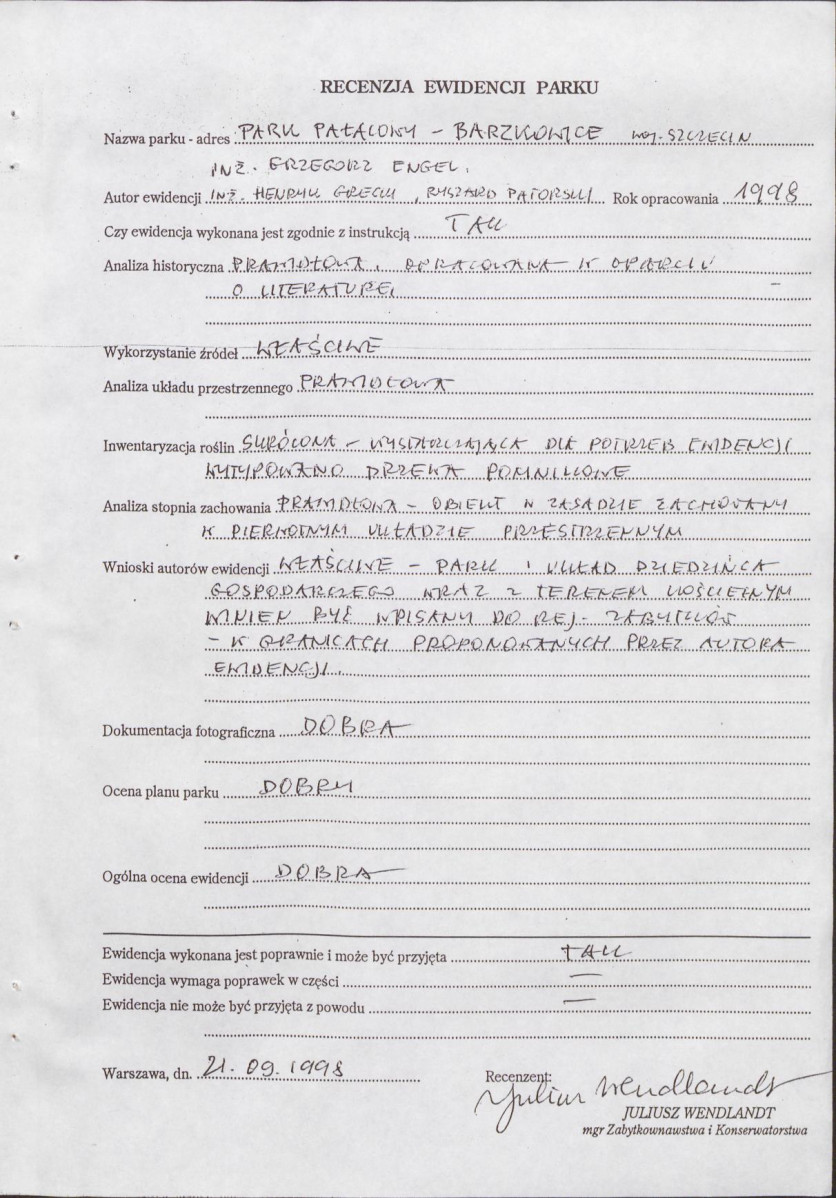 RECENZJA EWIDENCJI PARKU
Nazwa parku - adres PARK PAŁACOWY – BARZKOWICE woj. SZCZECIN
INŻ. GRZEGORZ ENGEL,
Autor ewidencji INŻ. HENRYK GRECKI, RYSZARD PATORSKI Rok opracowania 1998
Czy ewidencja wykonana jest zgodnie z instrukcją TAK
Analiza historyczna PRAWIDŁOWA. OPRACOWANA W OPARCIU
O LITERATURĘ,
Wykorzystanie źródeł WŁAŚCIWE
Analiza układu przestrzennego PRAWIDŁOWA
Inwentaryzacja roślin SKRÓCONA – WYSTARCZAJĄCA DLA POTRZEB EWIDENCJI
WYTYPOWANO DRZEWA POMNIKOWE
Analiza stopnia zachowania PRAWIDŁOWA – OBIEKT W ZASADZIE ZACHOWANY
W PIERWOTNYM UKŁADZIE PRZESTRZENNYM
Wnioski autorów ewidencji WŁAŚCIWE – PARK I UKŁAD DZIEDZIŃCA
GOSPODARCZEGO WRAZ Z TERENEM KOŚCIELNYM
WINIEN BYĆ WPISANY DO REJ. ZABYTKÓW
– W GRANICACH PROPONOWANYCH PRZEZ AUTORA
EWIDENCJI.
Dokumentacja fotograficzna DOBRA
Ocena planu parku DOBRY
Ogólna ocena ewidencji DOBRA
Ewidencja wykonana jest poprawnie i może być przyjęta TAK
Ewidencja wymaga poprawek w części —
Ewidencja nie może być przyjęta z powodu —
Warszawa, dn. 21.09.1998 Recenzent:
Juliusz Wendlandt
JULIUSZ WENDLANDT
mgr Zabytkownawstwa i Konserwatorstwa